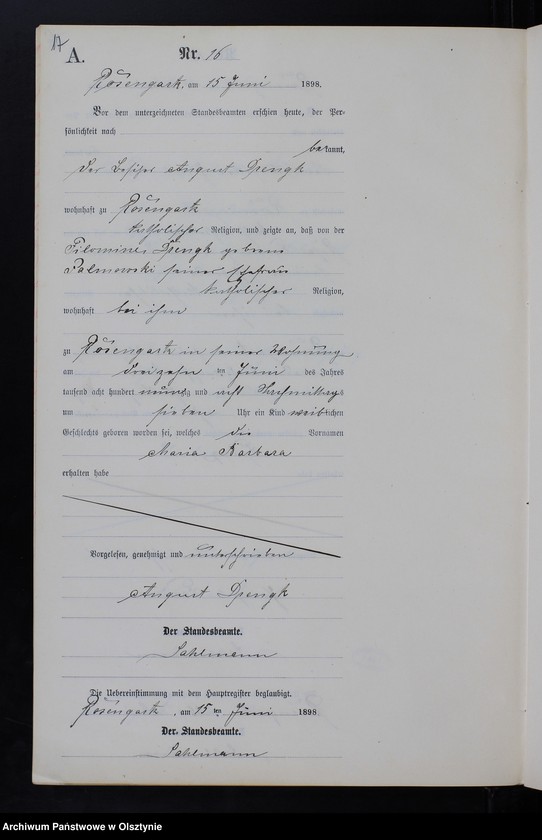 17
A.
Nr. 16
Rosengarth, am 15 Juni 1898.
Vor dem unterzeichneten Standesbeamten erschien heute, der Per-
sönlichkeit nach
bekannt,
der Besitzer August Spengk
wohnhaft zu Rosengarth
katholischer Religion, und zeigte an, daß von der
geborene
Palmowski seiner Ehefrau
katholischer Religion,
wohnhaft bei ihm
zu Rosengarth in seiner Wohnung
am dreizehn ten Juni des Jahres
tausend acht hundert neunzig und acht Nachmittags
um sieben Uhr ein Kind weiblichen
Geschlechts geboren worden sei, welches die Vornamen
Maria Barbara
erhalten habe
Vorgelesen, genehmigt und unterschrieben
August Spengk
Der Standesbeamte.
Sahlmann
Die Uebereinstimmung mit dem Hauptregister beglaubigt.
Rosengarth, am 15 ten Juni 1898
Der Standesbeamte.
Sahlmann
Archiwum Państwowe w Olsztynie